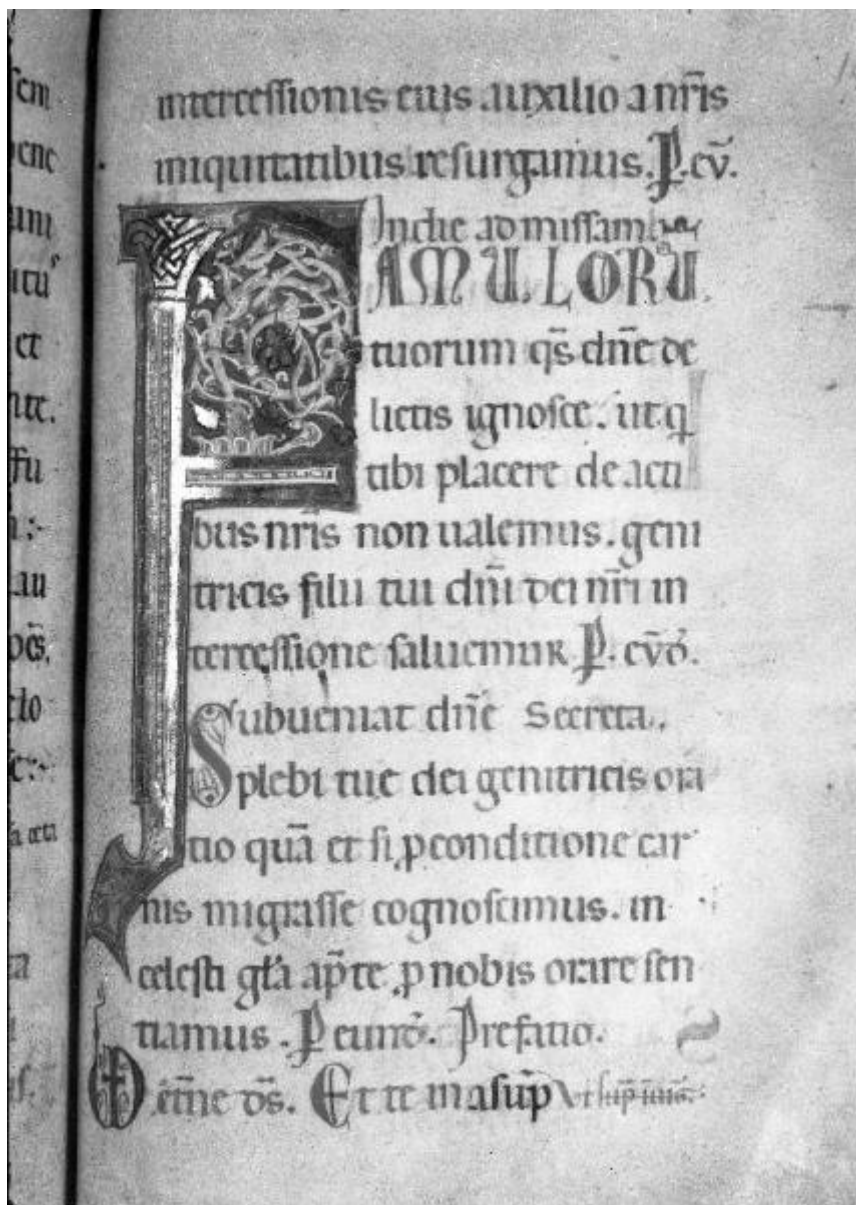 intercessionis eius auxilio a nr̃is
iniquitatibus resurgamus. P. eũ.
In die ad missam
FAMULORU
tuorum qs̃ dñe de
lictis ignosce. ut q
tibi placere de actu
bus nr̃is non ualemus. geni
tricis filii tui dñi dei nr̃i in
tercessione saluemur P. eũd̃.
Subueniat dñe Secreta.
plebi tue dei genitricis ora
tio quã et si p conditione car
nis migrasse cognoscimus. in
celesti gl̃a ap̃te p nobis orare sen
tiamus. P eund̃. Prefatio.
etñe ds̃. Et te in asũp
sem
bene
et
ffu
au
clo